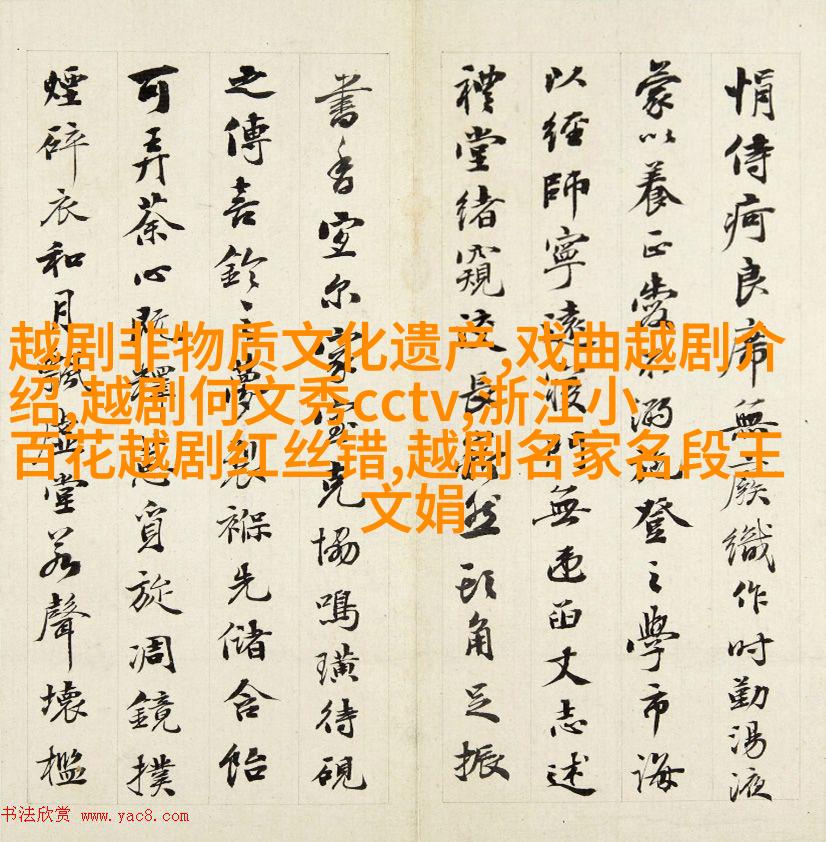 侍疴良席無廢織作时勤湯液
蒙以養正愛不溺登之學市海
以經師寧遠無丈志述
禮堂緒窺長然頭角足振
書香室尔家克協鳴璜待硯
之傳喜鈴夢製褓先儲含飴
可弄荼心覓旋凋鏡撲
煙碎衣和月虛堂若聲壞檻
越剧非物质文化遗产,戏曲越剧介
绍,越剧何文秀cctv,浙江小
百花越剧红丝错,越剧名家名段王
文娟
书法欣赏 www.yac8.com